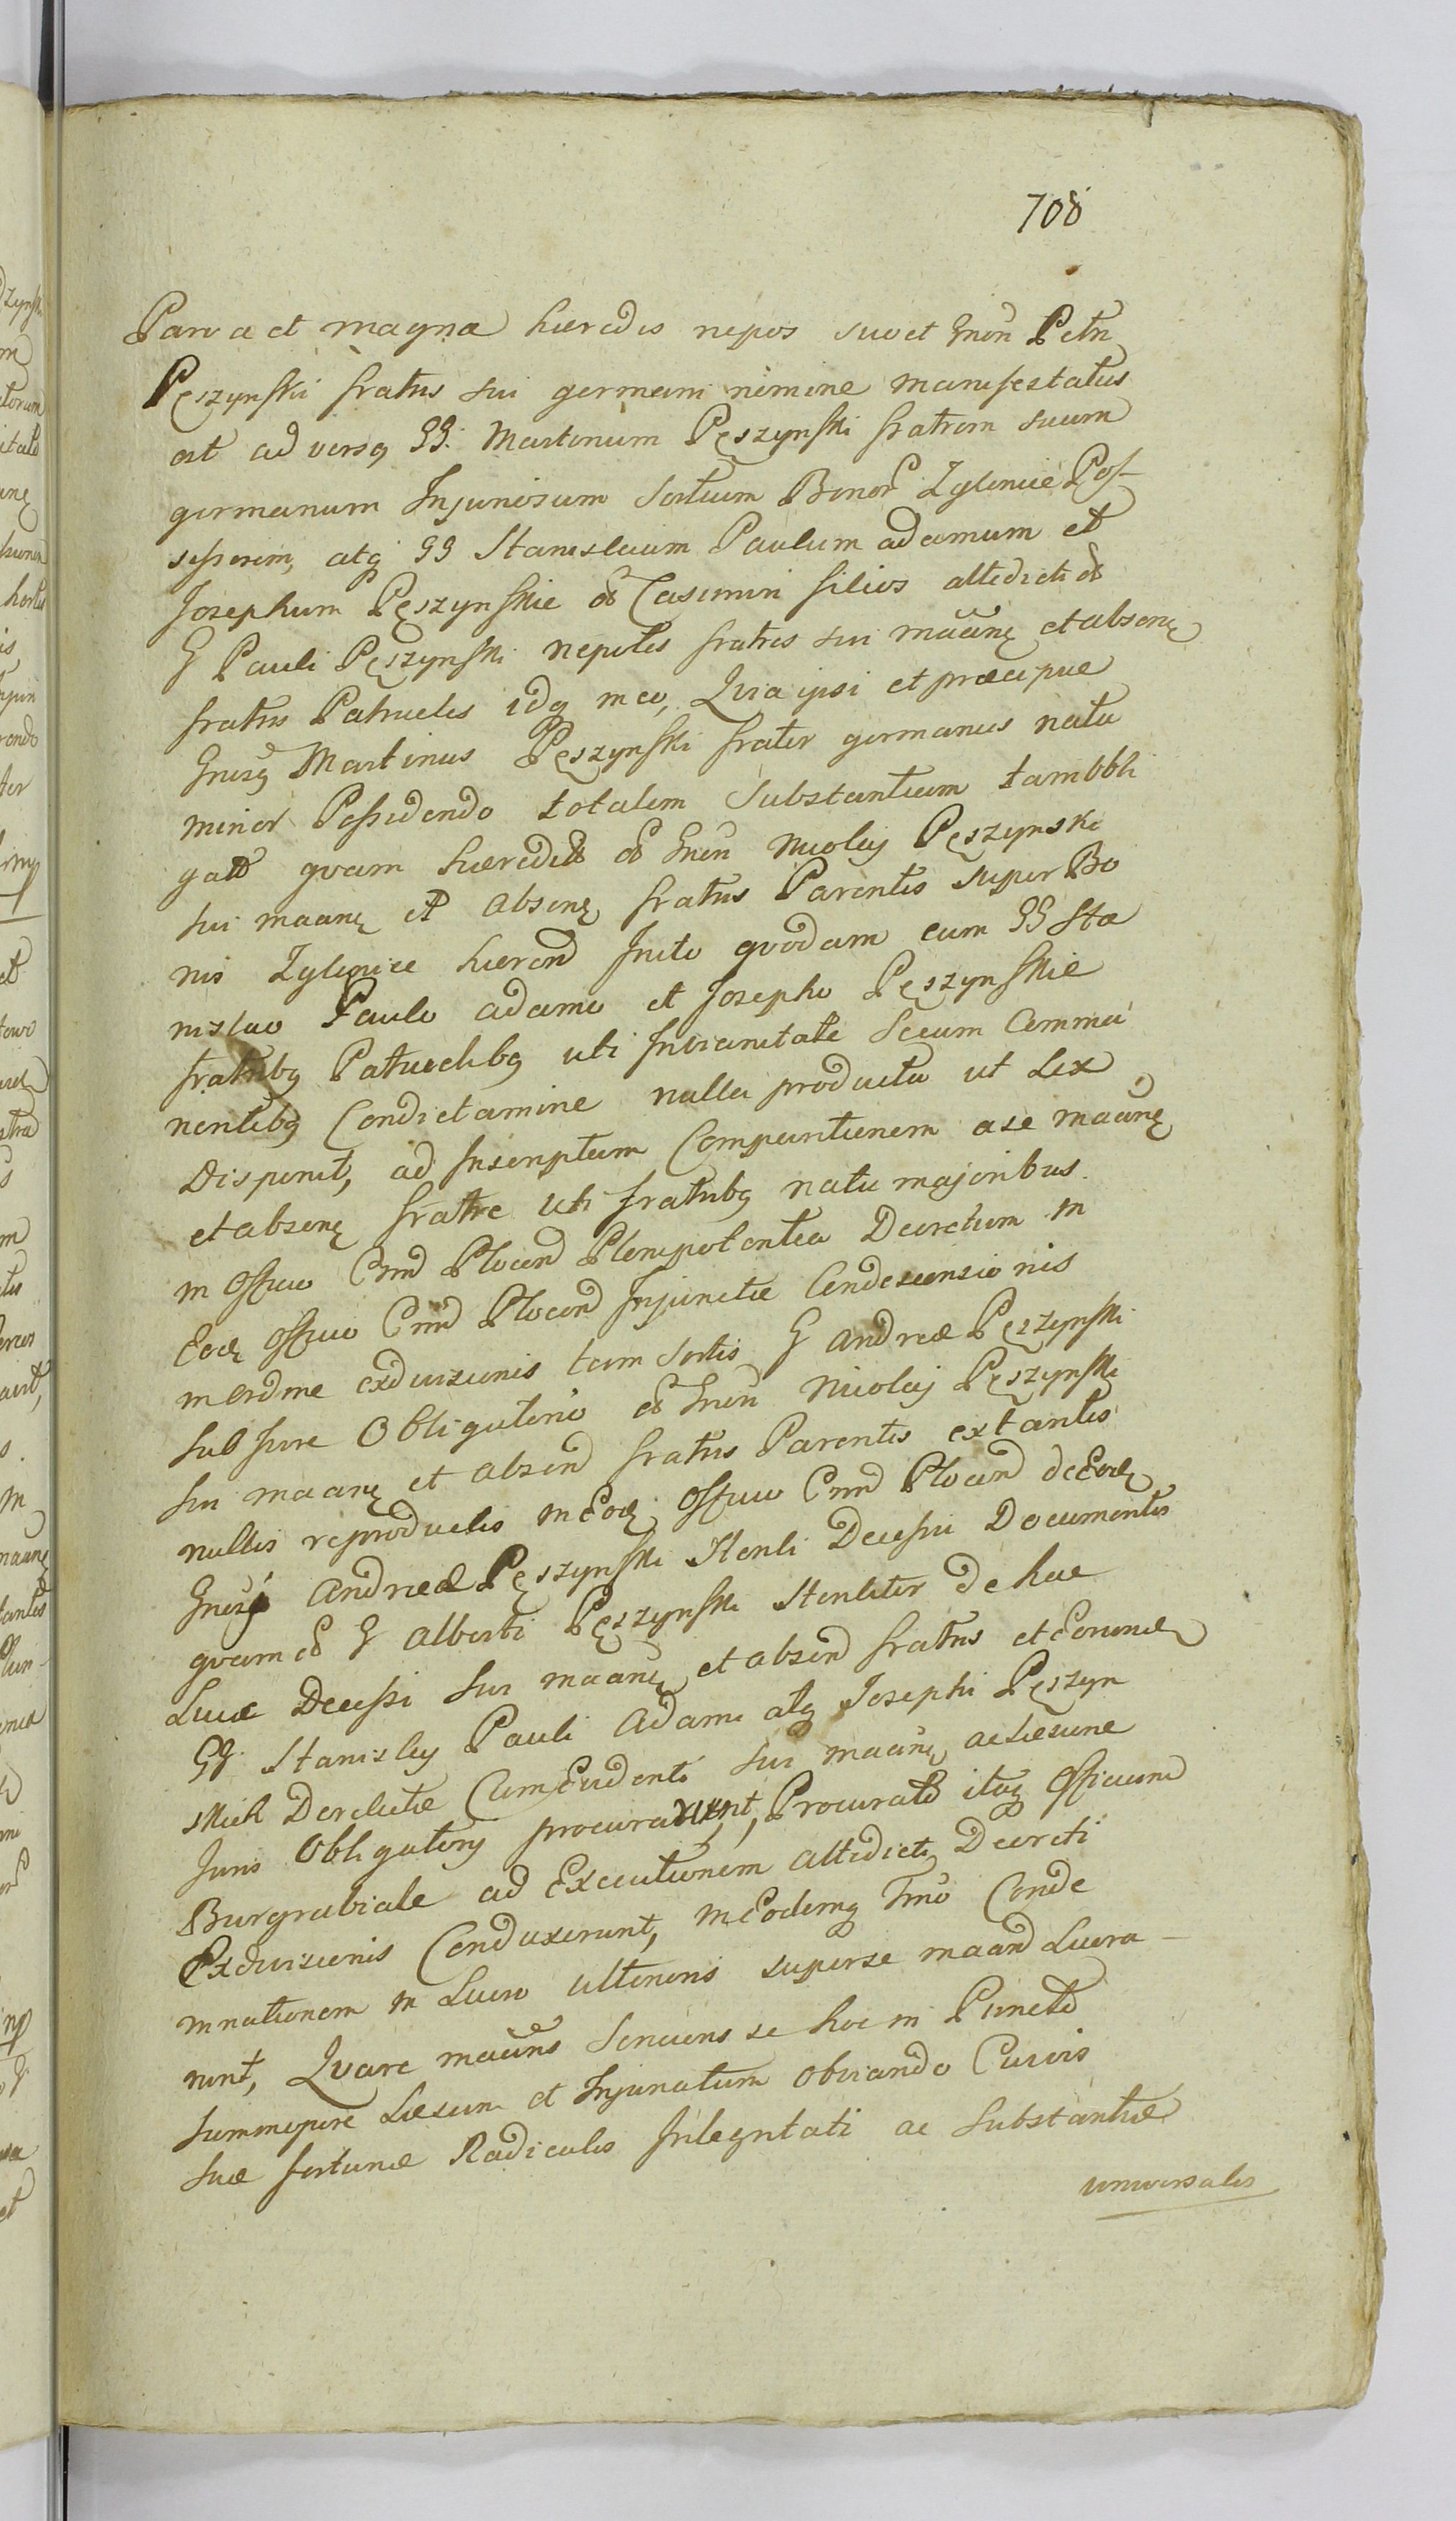 708
Parva et magna hæredis nepos suo et Gnosi Petri
Pęszynski fratris sui germani nomine manifestatus
est adversq GG. Martinum Pęszynski fratrem suum
germanum Injuriosum Sortium Bonor Zglenice Pos-
sessorem, atq GG Stanislaum Paulum adamum et
Josephum Pęszynskie o Casimiri filios alledicti o
G Pauli Pęszynski nepotes fratres sui maanę et absenę
fratris Patrueles idq in eo, Quia ipsi et præcipue
Gnosq Martinus Pęszynski frater germanus natu
minor Possidendo totalem Substantiam tam obli
gatt quam hæredit o Gnosi Nicolaj Pęszynski
sui maanę et absenę fratris Parentis super Bo
nis Zglenice hærend Inito quodam cum GG Sta
nislao Paulo adamo et Josepho Pęszynskie
fratribq Patruelibq uti Invianitate Secum Comma
nentibq Condictamine nulla producta ut Lex
Disponit, ad Inscriptam Comparitionem a se maanę
et absenę fratre uti fratribq natu majoribus
in Officio Cnnd Plocend Plenipotentia Decretum in
Eodę officio Cnnd Plocend Injunctæ Condescensionis
in ordine exdivisionis tam Sortis G andreæ Pęszynski
sub jure Obligatorio o Gnosi Nicolaj Pęszynski
sui maanę et absend fratris Parentis extantis
nullis reproductis in Eodę officio Cnnd Plocend de Eodę
Gnosi andreæ Pęszynski Sterili Decessu Documentis
quam o G alberti Pęszynski Steriliter de hac
Luce Decessi sui maanę et absend fratris et Eorundę
GG. Stanislaj Pauli Adami atq Josephi Pęszyn
skich Derelictæ Cum Evidenti sui maanę ac læsione
Juris Obligatorÿ procurarunt, Procurato itaq Officium
Burgrabiale ad Executionem altedicti Decreti
Exdivisionis Conduxerunt, in Eodemq Tmo Conde
mnationem in Lucro ulterioris super se maand Lucra-
runt, Quare maans Senciens se hoc in Puncto
summopere Læsum et Injuriatum obviando Cuivis
suæ fortunæ Radicalis Integritati ac Substantiæ
universalis